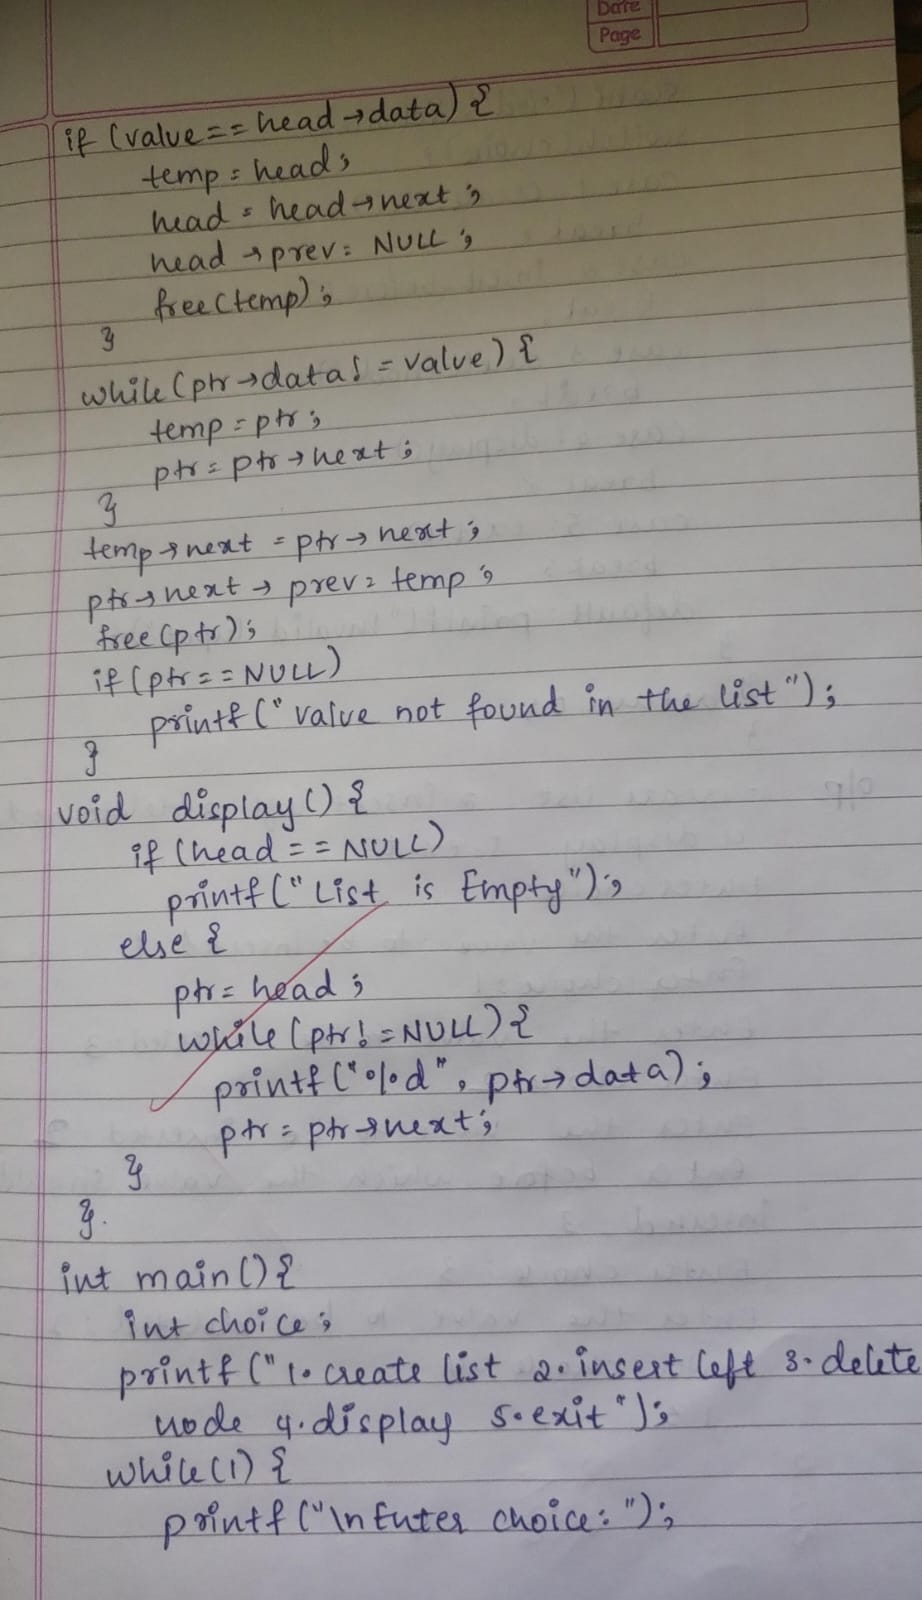 Date
Page
if (value == head→data) {
temp = head;
head = head→next;
head→prev = NULL;
free(temp);
}
while (ptr→data != value) {
temp = ptr;
ptr = ptr→next;
}
temp→next = ptr→next;
ptr→next→prev = temp;
free(ptr);
if (ptr == NULL)
printf("value not found in the list");
}
void display() {
if (head == NULL)
printf("List is Empty");
else {
ptr = head;
while (ptr != NULL) {
printf("%d", ptr→data);
ptr = ptr→next;
}
}.
int main() {
int choice;
printf("1.create list 2.insert left 3.delete
node 4.display 5.exit");
while(1) {
printf("\nEnter choice:");